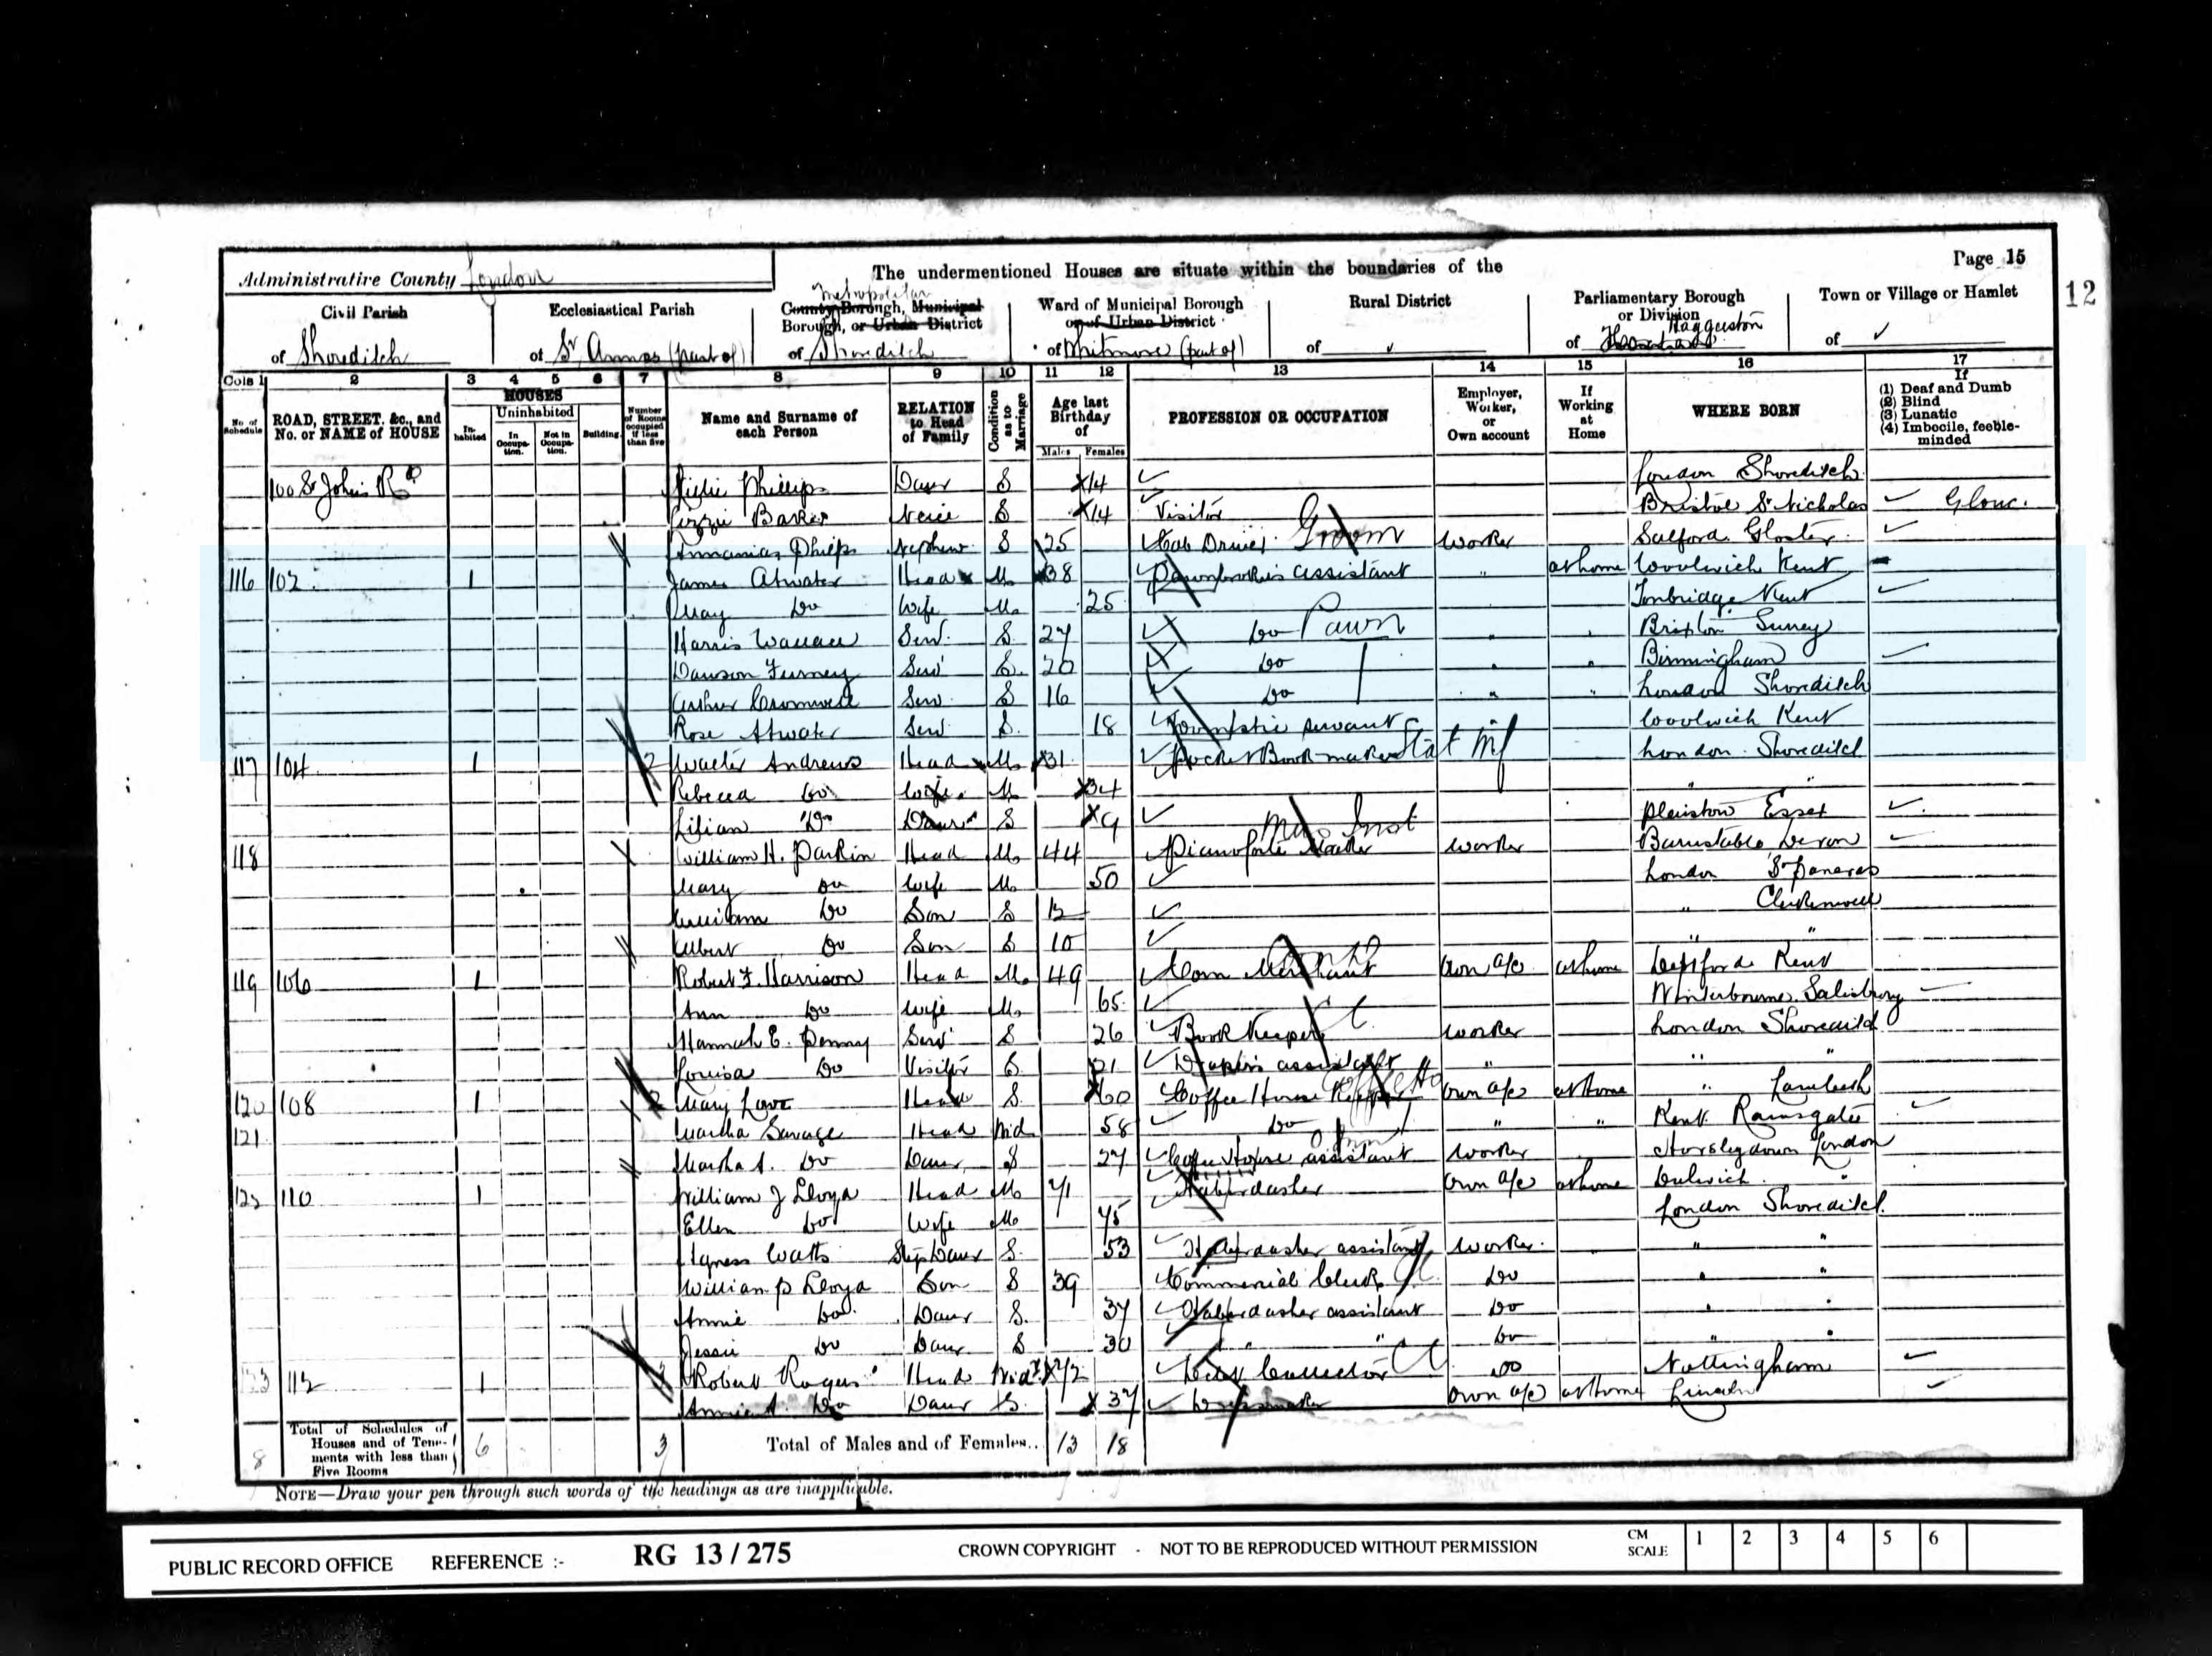 Administrative County London
The undermentioned Houses are situate within the boundaries of the
Page 15
12
Civil Parish
of Shoreditch
Ecclesiastical Parish
of St Annes (part of)
Metropolitan
County Borough, Municipal Borough, or Urban District
of Shoreditch
Ward of Municipal Borough or of Urban District
of Whitmore (part of)
Rural District
of
Parliamentary Borough or Division
of Haggerston
Town or Village or Hamlet
of
Cols 1 2 3 4 5 6 7 8 9 10 11 12 13 14 15 16 17
No. of Schedule
ROAD, STREET, &c., and No. or NAME of HOUSE
HOUSES
Inhabited
Uninhabited
In Occupation.
Not in Occupation.
Building.
Number of Rooms occupied if less than five
Name and Surname of each Person
RELATION to Head of Family
Condition as to Marriage
Age last Birthday of
Males Females
PROFESSION OR OCCUPATION
Employer, Worker, or Own account
If Working at Home
WHERE BORN
If
(1) Deaf and Dumb
(2) Blind
(3) Lunatic
(4) Imbecile, feeble-minded
100 St John's Rd Phillips Daur S 14 London Shoreditch
Lizzie Baker Neice S 14 Visitor Bristol St Nicholas Glouc.
Annanias Philips Nephew S 25 Cab Driver Groom Worker Salford Gloster
116 102 1 James Atwater Head M 38 Pawnbrokers assistant " at home Woolwich Kent
May Do Wife M 25 Tonbridge Kent
Harris Wallace Serv. S 27 Do Pawn " " Brixton Surrey
Dawson Furney Serv S. 20 Do " " Birmingham
Arthur Cromwell Serv S 16 Do " " London Shoreditch
Rose Atwater Serv S. 18 Domestic servant Woolwich Kent
117 104 1 2 Walter Andrews Head M 31 Pocket Book maker Stat Mf London Shoreditch
Rebecca Do Wife M 34 " "
Lilian Do Daur S 9 Plaistow Essex
118 William H. Parkin Head M 44 Pianoforte Maker Mus Inst Worker Barnstable Devon
Mary Do Wife M 50 London St Pancras
William Do Son S 12 " Clerkenwell
Albert Do Son S 10 " "
119 106 1 Robert F. Harrison Head M 49 Corn Merchant Own a/c at home Deptford Kent
Ann Do Wife M 65 Winterbourne Salisbury
Hannah E. Penny Serv S 26 Book Keeper Worker London Shoreditch
Louisa Do Visitor S. 21 Drapers assistant " " "
120 108 1 2 Mary Love Head S. 60 Coffee House Keeper Own a/c at home " Lambeth
121 Martha Savage Head Wid 58 Do " " Kent Ramsgate
Martha A. Do Daur S 27 Coffee House assistant Worker Horsleydown London
122 110 1 William J Lloyd Head M 71 Haberdasher Own a/c at home Dulwich
Ellen Do Wife M 75 London Shoreditch
Agness Watts Step Daur S. 53 Haberdasher assistant Worker " "
William P Lloyd Son S 39 Commercial Clerk Do " "
Annie Do Daur S. 37 Haberdasher assistant Do " "
Jessie Do Daur S 30 " " Do " "
123 112 1 3 Robert Rogers Head Widr 72 Collector Do Nottingham
Annie A. Do Daur S. 37 Dressmaker Own a/c at home Lincoln
8 Total of Schedules of Houses and of Tenements with less than Five Rooms 6 3 Total of Males and of Females.. 13 18
NOTE—Draw your pen through such words of the headings as are inapplicable.
PUBLIC RECORD OFFICE REFERENCE :- RG 13 / 275 CROWN COPYRIGHT - NOT TO BE REPRODUCED WITHOUT PERMISSION CM SCALE 1 2 3 4 5 6